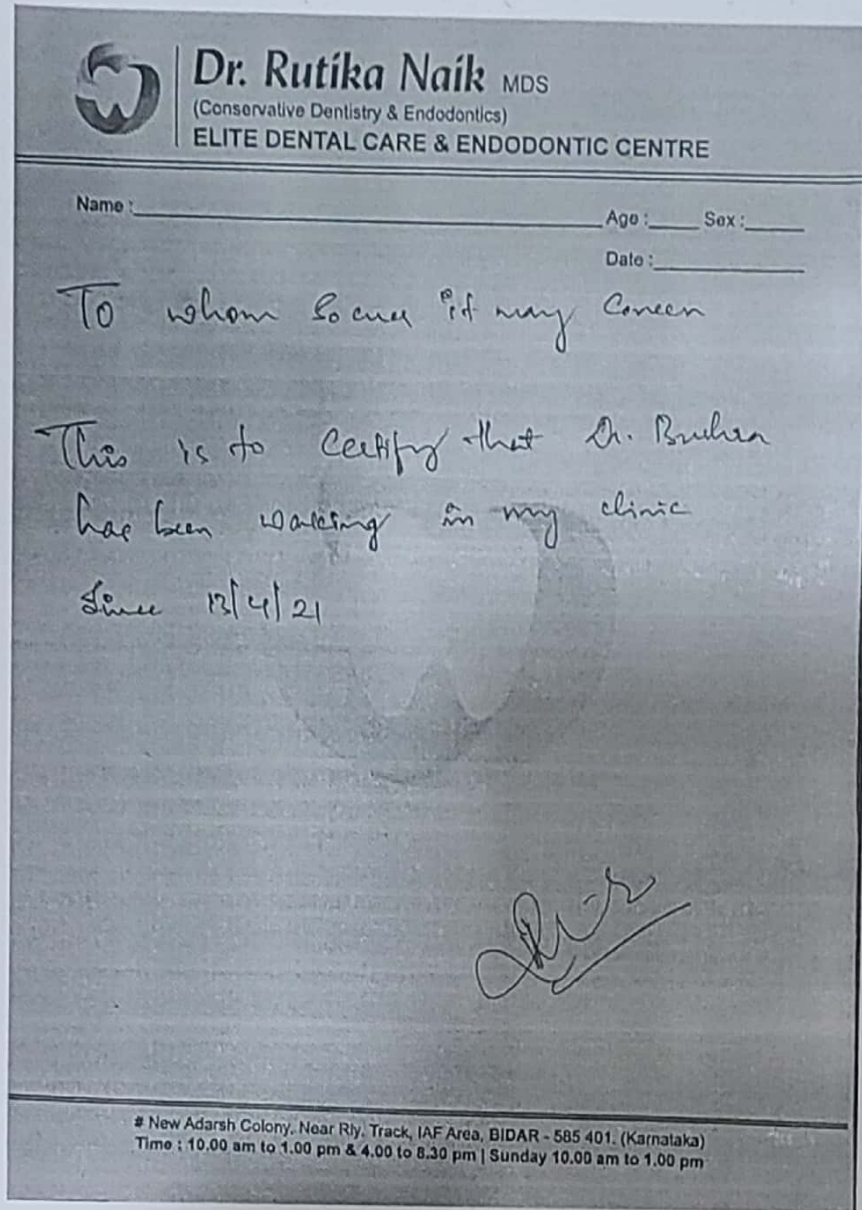 Dr. Rutika Naik MDS
(Conservative Dentistry & Endodontics)
ELITE DENTAL CARE & ENDODONTIC CENTRE
Name :
Age : Sex :
Date :
To whom so ever it may Concern
This is to Certify that Dr.
has been working in my clinic
Since 13/4/21
# New Adarsh Colony, Near Rly. Track, IAF Area, BIDAR - 585 401. (Karnataka)
Time : 10.00 am to 1.00 pm & 4.00 to 8.30 pm | Sunday 10.00 am to 1.00 pm